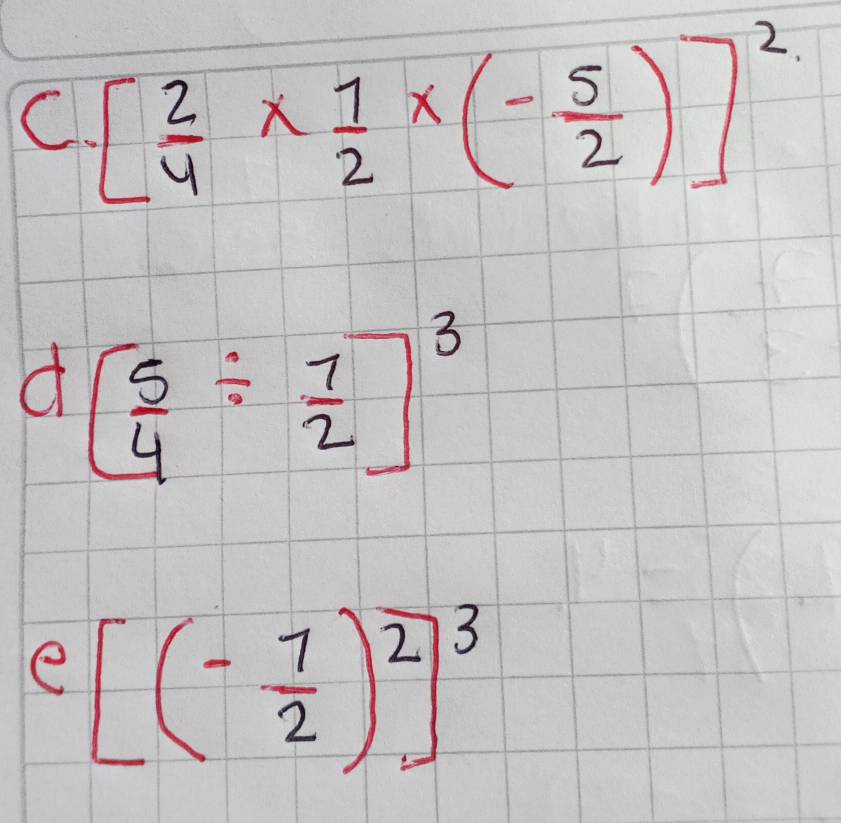 c. [2/4 × 1/2 × (- 5/2)]^2.
d [5/4 ÷ 1/2]^3
e [(- 1/2)^2]^3